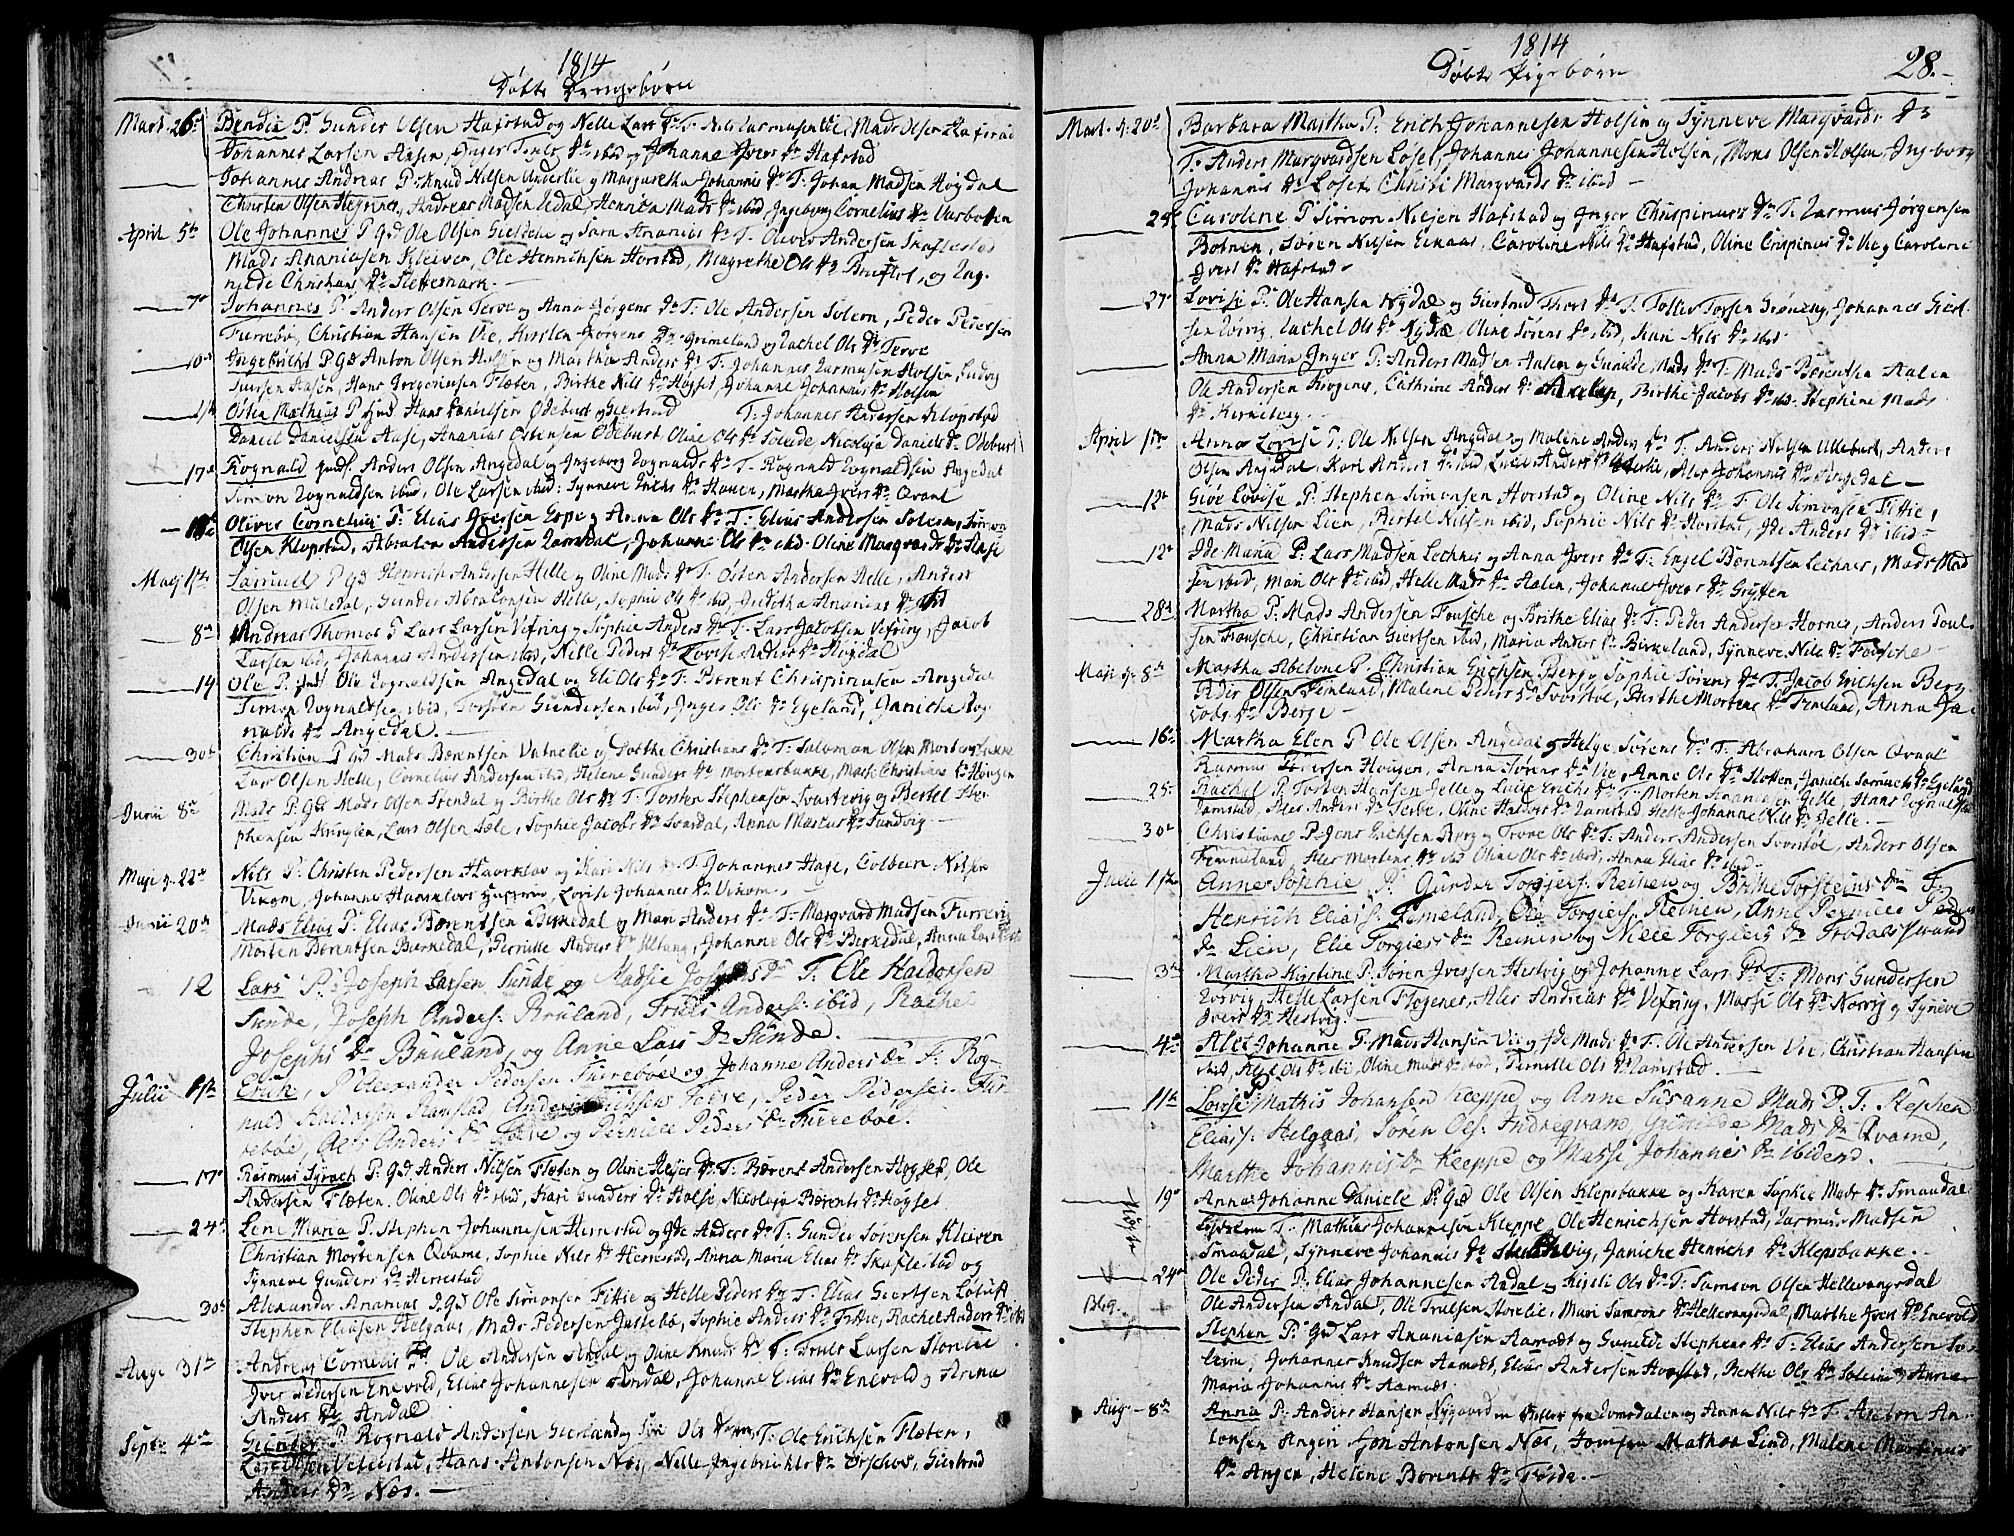 1814
Døbte Drengebørn
Mart. 26de Bendix P. Gunder Olsen Hafstad og Nelle Lars Dr T. Nils Rasmusen Vie, Mads Olsen Hafstad
Johannes Larsen Aasen, Inger Dr ibid og Johanne Ivers Dr Hafstad
Johannes Andreas P. Knud Nilsen Underlie og Margaretha Johannis Dr T. Johan Madsen Høgdal
Christen Olsen Andreas Madsen Hennica Mads Dr ibid Ingeborg Cornelius Dr
April 5te Ole Johannes P. Gd Ole Olsen Gielsche og Sara Ananias Dr T. Oliver Andersen Skaflestad
Mads Ananiasen Kleiven, Ole Henrichsen Horstad, Magrethe Ols Dr og Ing-
Christians Dr Slettemark.
7de Johannes P. Anders Olsen Terve og Anna Jørgens Dr T. Ole Andersen Solem, Peder Pedersen
Furrebø, Christian Hansen Vie, Kirsten Jørgens Dr Grimeland og Rachel Ols Dr Terve
10de Ingebricht P. Gd Anton Olsen og Martha Anders Dr T. Johannes Rasmusen Holsen, Ludvig
Iversen Aasen, Hans Gregoriusen Flæten, Birthe Nils Dr Johanne Johannis Dr Holsen
Osten Mathias P. Hans Danielsen Odebust og Giertrud T. Johannes Andersen Klopstad
Daniel Danielsen Aase, Ananias Ostensen Odebust Oline Ols Dr Solede Nicolyja Daniels Dr Odebust
17de Rognald Anders Olsen Angedal og Ingeborg Rognalds Dr T. Rognald Rognaldsen Angedal
Simon Rognaldsen ibid, Ole Larsen ibid, Synneve Erichs Dr Hauen, Martha Ivers Dr Qvaal
Oliver Cornelius P. Elias Iversen Espe og Anna Ols Dr T. Elius Andersen Solem, Simon
Olsen Klopstad, Abraham Andersen Ramsdal, Johanne Ols Dr ibid. Oline Marqvards Dr Aase
Maji 1ste Samuel P. Gd Henrich Andersen Helle og Oline Mads Dr T. Osten Andersen Helle, Anders
Olsen Muledal, Gunder Abrahamsen Helle, Sophie Ols Dr ibid, Judithe Ananias Dr ibid
8de Andreas Thomas P. Lars Larsen Vefring og Sophie Anders Dr T. Lars Jacobsen Vefring, Jacob
Larsen ibid, Johannes Andersen ibid, Nelle Peders Dr Lovise Anders Dr
14 Ole P. Ole Rognaldsen Angedal og Eli Ols Dr T. Bærent Christpinusen Angedal
Simon Rognaldsen ibid, Torsten Gundersen ibid, Inger Ols Dr Egeland, Janiche Rog-
nalds Dr Angedal.
30te Christian P. Gd Mads Bærentsen Vatnelie og Dorthe Christians Dr T. Salomon Olsen Mortensbakke
Lars Olsen Helle, Cornelius Andersen ibid, Helene Gunders Dr Mortensbakke, Christines Dr Hougen
Junii 8de Mads P. Gd Mads Olsen Stendal og Birthe Ols Dr T. Torsten Stephensen Svartevig og Bertel Ste-
phensen Lars Olsen Sæle, Sophie Jacobs Dr Svardal, Anna Marcus Dr Sundvig
Maji d. 22de Nils P. Christen Pedersen Havreklov og Kari Nils Dr T. Johannes Hage, Colbeen Nilsen
Vixom, Johanne Havreklovs Hustrue, Lovise Johannes Dr Vixom.
Junii 20de Mads Elias P. Elias Bærentsen Birkedal og Mari Anders Dr T. Marqvard Madsen Furrevig
Morten Bærentsen Berkedal, Pernille Anders Dr Johanne Ols Dr Berkedal, Anna Lars Dr
12 Lars P. Joseph Larsen Sunde og Madsie Josephs Dr T. Ole Haldorsen
Sunde, Joseph Anders. Bruland, Truls Anders. ibid, Rachel
Josephs Dr Bruland, og Anne Lars Dr Sunde.
Julii 1ste P. Alexander Pedersen Furrebøe og Johanne Anders Dr T. Rog-
nald Ramstad, Anders Erichsen Terve, Peder Pedersen Fur-
rebøe, Ales Anders Dr Terve og Pernille Peders Dr Furreboe.
17de Rasmus Syrach P. Gd Anders Nilsen Flæten og Oline Dr T. Bærent Andersen Høgset, Ole
Andersen Flæten. Oline Ols Dr ibid, Kari Gunders Dr Holse, Nicolaja Bærents Dr Høgset
24de Lene Maria P. Stephen Johannesen Herrestad og Ide Anders Dr T. Gunder Sørensen Kleiven
Christian Mortensen Qvame, Sophie Nils Dr Herrestad, Anna Maria Elias Dr Skaflestad og
Synneve Gunders Dr Herrestad
30te Alexander Ananias P. Gd Ole Simonsen Fittie og Helle Peders Dr T. Elias Giertsen Løtuft
Stephen Eliasen Helgaas, Mads Pedersen Jastebø, Sophie Anders Dr Fittie, Rachel Anders Dr ibid
Augs 31te Andreas Cornelius P. Ole Andersen Andal og Oline Knuds Dr T. Truls Larsen Storelie
Iver Pedersen Enevold, Elias Johannesen Andal, Johanne Elias Dr Enevold og Anna
Anders Dr Andal
Septr 4de Gunder P. Rognald Andersen Gierland og Ols Dr T. Ole Erichsen Flæten,
Lars Olsen Vetlestad, Hans Antonsen Næs, Nelle Ingebrichts Dr Giertrud
Anders Dr Næs.
1814
Døbte Pigebørn
28.
Mart. d. 20de Barbara Martha P. Erich Johannesen Holsen og Synneve Marqvards Dr
T. Anders Marqvardsen Løset, Johannes Johannesen Holsen, Mons Olsen Holsen, Ingborg
Johannis Dr Løset, Christi Marqvards Dr ibid
25 Caroline P. Simon Nilsen Hafstad og Inger Chrispinus Dr T. Rasmus Jørgensen
Botnen, Søren Nilsen Eikaas, Caroline Nils Dr Hafstad, Oline Crispinus Dr Vie og Caroline
Ivers Dr Hafstad
27 Lovise P. Ole Hansen Nydal og Giertrud Thors Dr T. Tollev Torsen Johannes Giert-
sen Rachel Ols Dr Nydal, Oline Sørens Dr ibid, Kari Nils Dr ibid
Anna Maria Inger P. Anders Madsen Aalen og Gunilde Mads Dr T. Mads Bærentsen Aalen
Ole Andersen Krogenes, Cathrine Anders Dr Birthe Jacobs Dr ibid. Stephine Mads
Dr Kirneberg.
April 1ste Anna Lovise P. Ole Nilsen Angedal og Malene Anders Dr T. Anders Nilsen Ullebust, Anders
Olsen Angedal, Kari Anders Dr ibid, Lucie Anders Dr Ales Johannis Dr Angedal
12te Giøe Lovise P. Stephen Simonsen Horstad og Oline Nils Dr T. Ole Simonsen Fittie,
Mads Nilsen Lien, Bertel Nilsen ibid, Sophie Nils Dr Horstad, Ide Anders Dr ibid
12te Ide Maria P. Lars Madsen Lechnes og Anna Ivers Dr T. Engel Bærentsen Lechnes, Mads Mad-
sen ibid, Mari Ols Dr ibid, Helle Mads Dr Aalen, Johanne Ivers Dr Gryten
28de Martha P. Mads Andersen Fousche og Brithe Elias Dr T. Peder Andersen Hornes, Anders Poul-
sen Fousche, Christian Giertsen ibid, Maria Anders Dr Birkeland, Synneve Nils Dr Fousche
Maji d. 8de Martha Abelone P. Christian Erichsen Berg og Sophie Sørens Dr T. Jacob Erichsen Berg
Peder Olsen Femland, Malene Peders Dr Svorstøl, Birthe Mortens Dr Femland, Anna Ja-
cobs Dr Berge
16de Martha Elen P. Ole Olsen Angedal og Helge Sørens Dr T. Abraham Olsen Qvaal
Rasmus Iversen Hougen, Anna Sørens Dr Vie, Anne Ols Dr Slotten, Janiche Samuels Dr Egeland
25 Rachel P. Torsten Hansen Jelle og Lucie Erichs Dr T. Morten Ananiasen Jelle, Hans Rognaldsen
Ramsdal, Ales Anders Dr Terve, Oline Haldors Dr Ramstad Helle Johanne Nils Dr Jelle.
30te Christiane P. Jens Erichsen Berg og Trone Ols Dr T. Anders Andersen Svorstøl, Anders Olsen
Femmeland, Ales Mortens Dr ibid Oline Ols Dr ibid, Anna Elias Dr ibid
Julii 1ste Anne Sophie P. Gunder Torgiers. Reinen og Birthe Torsteins Dr T.
Henrich Eliass. Fimeland, Ole Torgiers. Reinen, Anne Pernille Peders
Dr Lien, Elie Torgiers Dr Reinen og Nille Torgiers Dr Trodalsstrand
3de Martha Kirstine P. Søren Iversen Hestvig og Johanne Lars Dr T. Mons Gundersen
Helle Larsen Flogenes, Ales Andreas Dr Vefring, Massi Ols Dr Norvig og Synneve
Ivers Dr Hestvig.
4de Ales Johanne P. Mads Hansen Vie og Ide Mads Dr T. Ole Andersen Vie, Christian Hansen
ibid, Ales Ols Dr ibid, Oline Mads Dr ibid, Pernille Ols Dr Ramstad.
11te Lovise P. Mathis Johansen Kleppe og Anne Susanne Mads D. T. Stephen
Eliass. Helgaas, Søren Ols. Indreqvam, Gunilde Mads Dr Qvame,
Marthe Johannis Dr Kleppe og Masse Johannes Dr ibidem.
19de Anna Johanne Daniele P. Gd Ole Olsen Klepsbakke og Karen Sophie Mads Dr Smaadal
T. Mathias Johannesen Kleppe, Ole Henrichsen Horstad, Rasmus Madsen
Smaadal, Synneve Johannis Dr Janiche Henrichs Dr Klepsbakke.
24de Ole Peder P. Elias Johannesen Andal og Kisti Ols Dr T. Samson Olsen Hellevangsdal
Ole Andersen Andal, Ole Trulsen Storelie, Mari Samsons Dr Hellevangsdal, Marthe Ivers Dr Enevold
Stephen P. Gd Lars Ananiasen Aamodt og Gunilde Stephens Dr T. Elias Andersen So-
leim, Johannes Knudsen Aamodt, Elias Andersen Horstad, Berthe Ols Dr Soleim og Anna
Maria Johannis Dr Aamodt.
Aug. 8de Anna P. Anders Hansen Nygaard fra Romsdalen og Anna Nils Dr T. Anton An-
tonsen Angen Jon Antonsen Næs, Jomfru Mathea Lind, Malene Martinus
Dr Angen, Helene Bærents Dr